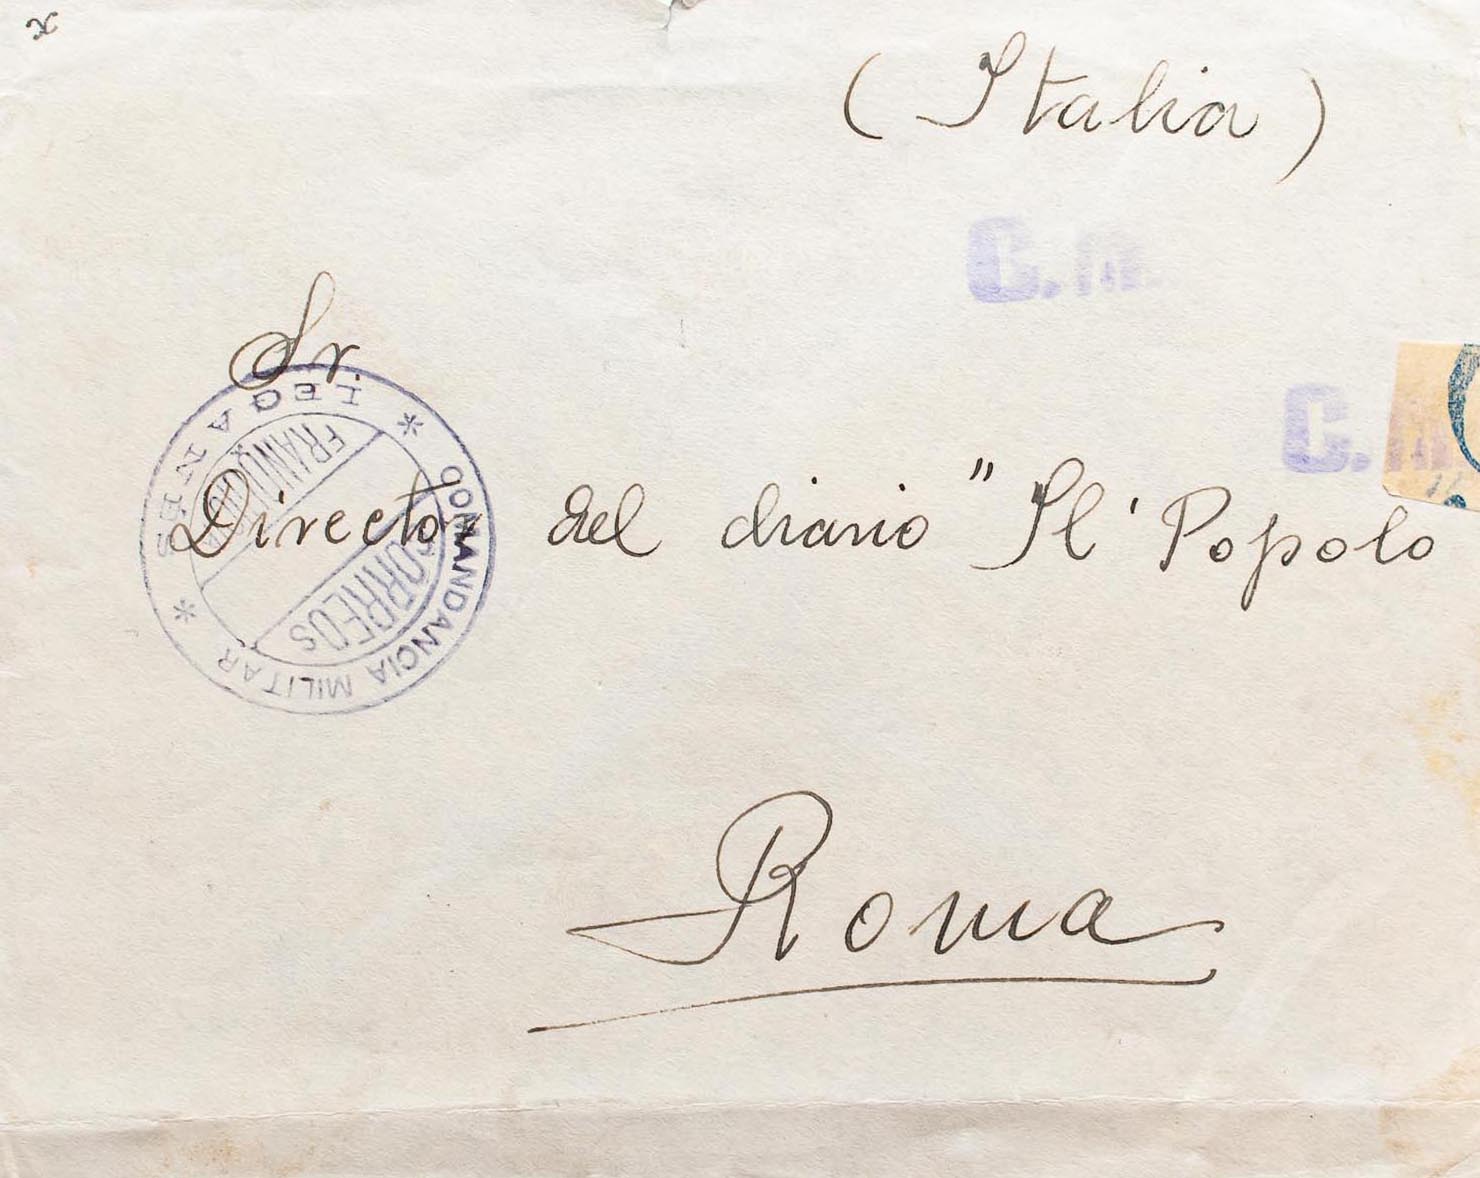 x
( Italia )
C.M.
Sr.
C.M.
Director del diario "Il' Popolo
* LEGANES * COMANDANCIA MILITAR
FRANQUICIA
CORREOS
Roma